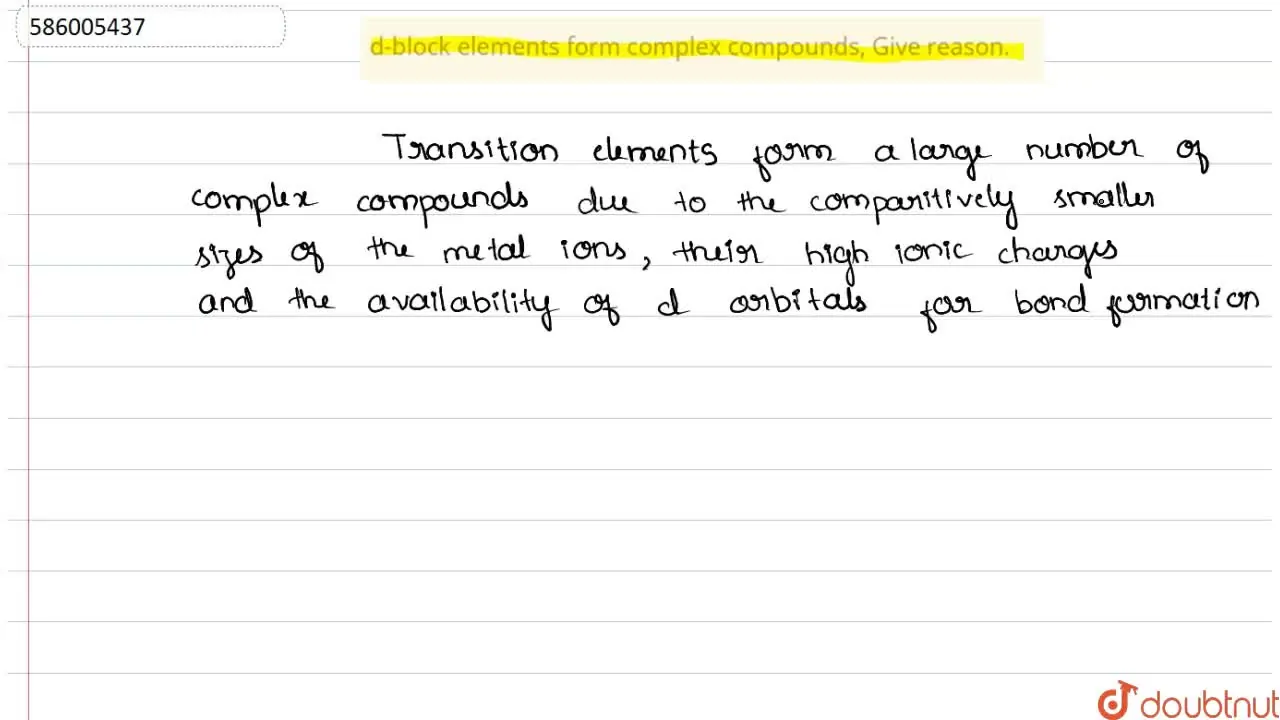 586005437
d-block elements form complex compounds, Give reason.
Transition elements form a large number of
complex compounds due to the comparitively smaller
sizes of the metal ions, their high ionic charges
and the availability of d orbitals for bond formation
doubtnut